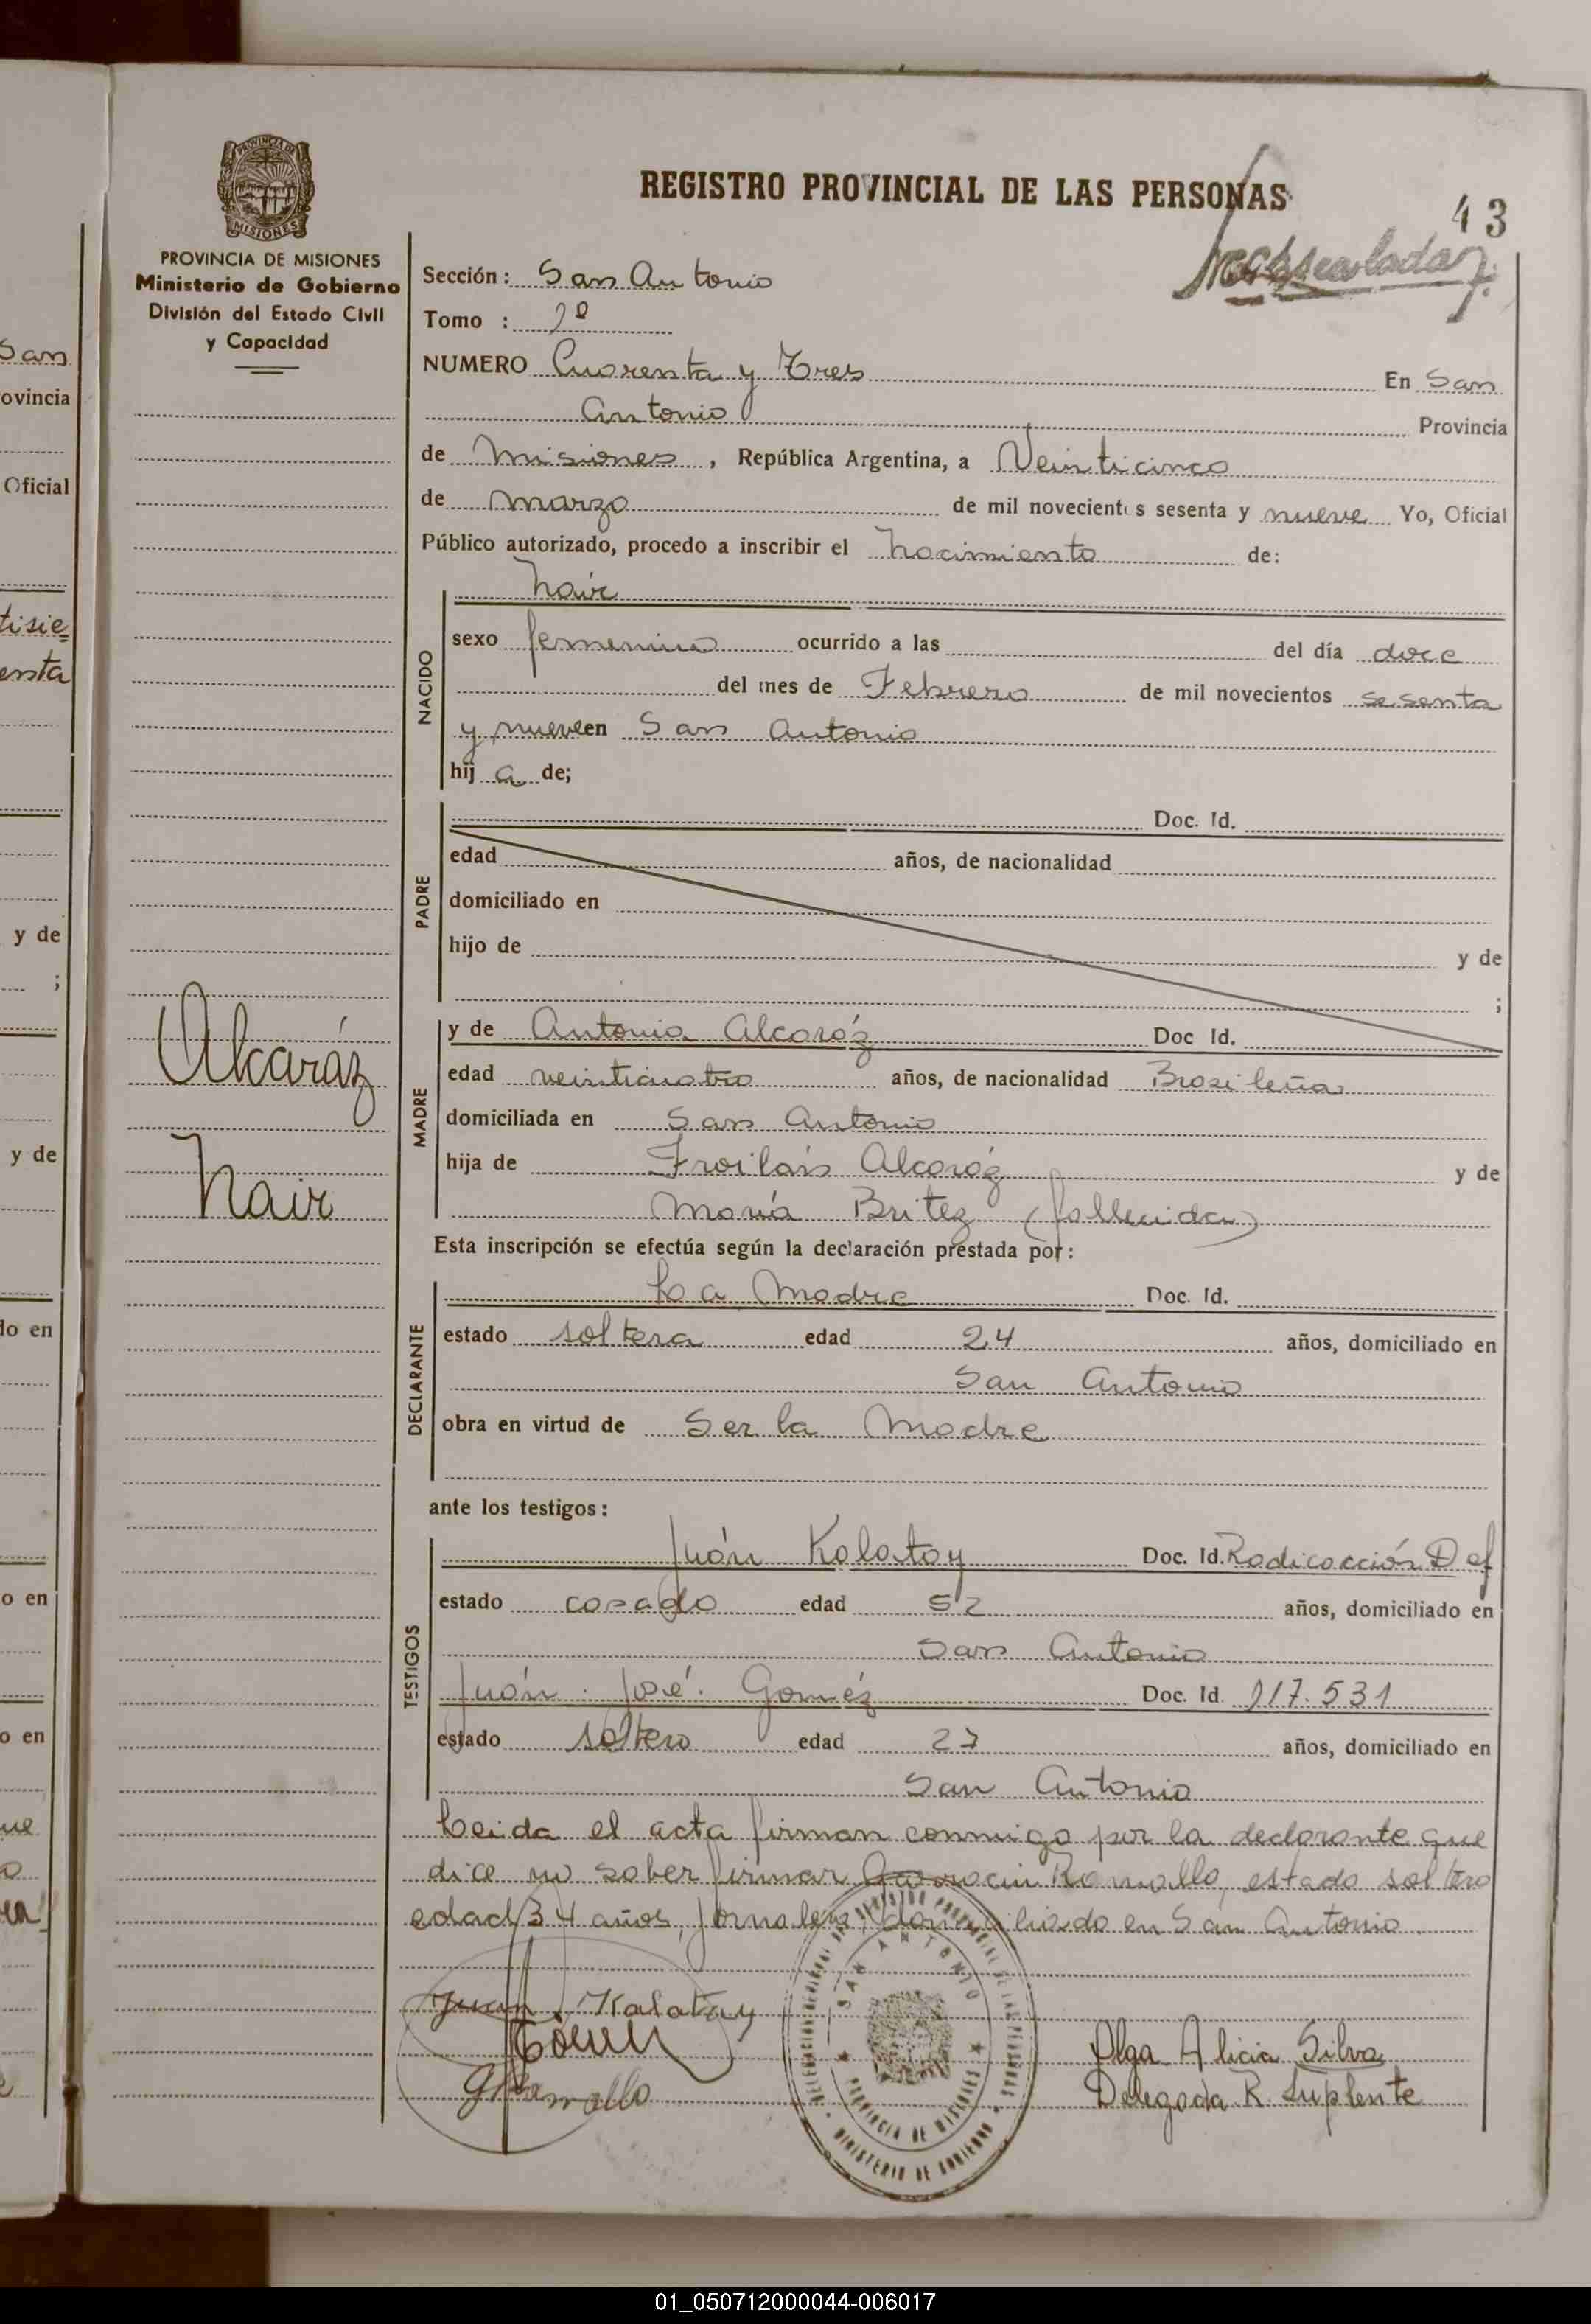 REGISTRO PROVINCIAL DE LAS PERSONAS
43
PROVINCIA DE MISIONES
Ministerio de Gobierno
División del Estado Civil
y Capacidad
Sección: San Antonio
Tomo : 2º
NUMERO Cuarenta y Tres En San
Antonio Provincia
de Misiones, República Argentina, a Veinticinco
de marzo de mil novecientos sesenta y nueve Yo, Oficial
Público autorizado, procedo a inscribir el nacimiento de:
NACIDO
Nair
sexo femenino ocurrido a las del día doce
del mes de Febrero de mil novecientos sesenta
y nueve en San Antonio
hij a de;
PADRE
Doc. Id.
edad años, de nacionalidad
domiciliado en
hijo de y de
;
MADRE
y de Antonia Alcaráz Doc Id.
edad veinticuatro años, de nacionalidad Brasileña
domiciliada en San Antonio
hija de Froilán Alcaráz y de
María Britez (fallecida)
Alcaráz
Nair
Esta inscripción se efectúa según la declaración prestada por:
DECLARANTE
La Madre Doc. Id.
estado soltera edad 24 años, domiciliado en
San Antonio
obra en virtud de Ser la Madre
ante los testigos:
TESTIGOS
Juán Kalatay Doc. Id. Radicacción Def
estado casado edad 52 años, domiciliado en
San Antonio
Juán José Goméz Doc. Id 117.531
estado soltero edad 27 años, domiciliado en
San Antonio
Leida el acta firman conmigo por la declarante que
dice no saber firmar Ramallo, estado soltero
edad 34 años, Jornalero, domiciliado en San Antonio
Juan Kalatay
Ramallo
SAN ANTONIO
PROVINCIA DE MISIONES
MINISTERIO DE GOBIERNO
Olga Alicia Silva
Delegada R. Suplente
San
ovincia
Oficial
tisie=
ensta
y de
;
y de
do en
o en
o en
01_050712000044-006017